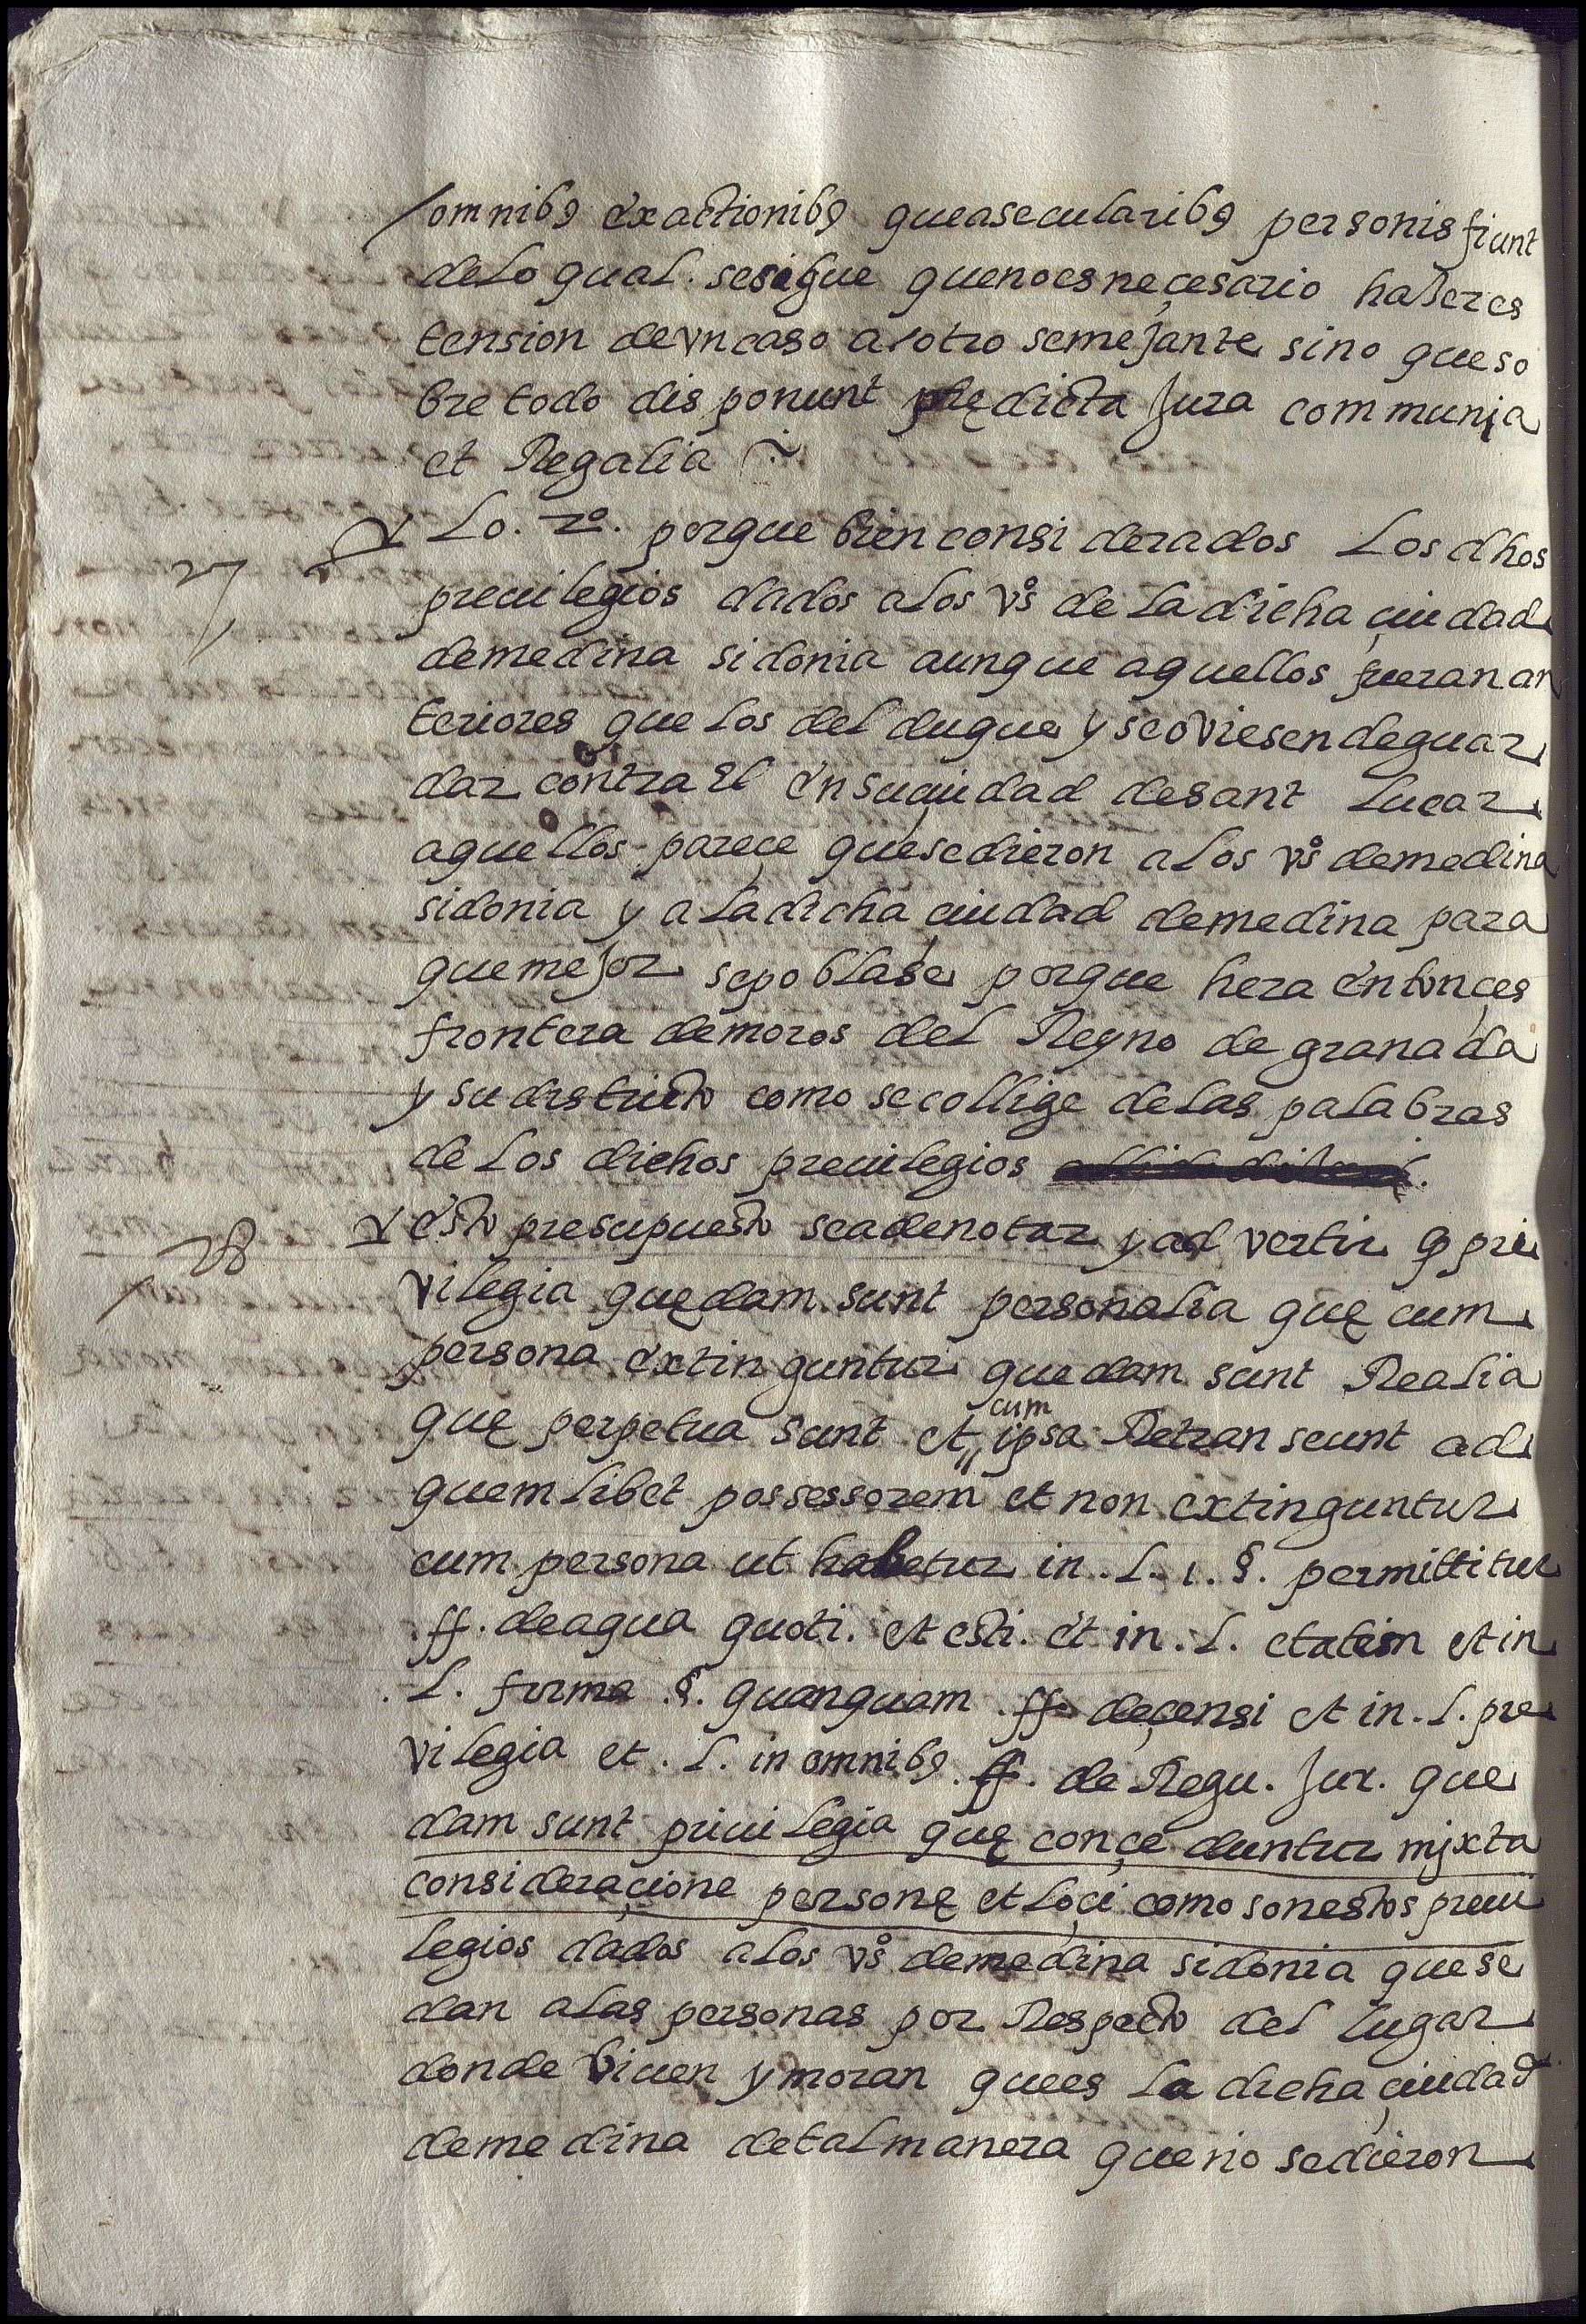 omnibꝯ exactionibꝯ que a secularibꝯ personis fiunt
delo qual. se sigue que no es neçesario hazer es
tension de vn caso a lotro semejante sino que so
bre todo disponunt prędicta Jura communja
et Regalia
Lo. 2º. porque bien considerados Los dhos
27
preuilegios dados a Los vºs de La dicha çiudad
de medina sidonia aunque aquellos fueran an
teriores que Los del duque y se oviesen de guar
dar contra El En su çiudad de sant Lucar
aquellos pareçe que se dieron a Los vºs de medina
sidonia y a La dicha çiudad de medina para
que mejor se poblase porque hera Entonçes
frontera de moros del Reyno de granada
y su districto como se collige de las palabras
de Los dichos preuilegios
28
Esto presupuesto sea de notar y advertir q̃ pri
vilegia quędam sunt personalia quę cum
persona extinguntur quedam sunt Realia
quę perpetua sunt et cum ipsa Re transeunt ad
quemlibet possessorem et non extinguntur
cum persona ut habetur in. L. 1. §. permittitur
ff. de aqua quoti. et esti. et in. L. etatem et in
L. forma §. quanquam ff. de çensi et in. L. pre
vilegia et. L. in omnibꝯ. ff. de Regu. Jur. que
dam sunt priuilegia quę conçeduntur mjxta
consideraçione personę et Loçi como son estos preui
Legios dados a Los vºs de medina sidonia que se
dan a Las personas por Respecto del Lugar
donde biuen y moran que es La dicha çiudad
de medina de tal manera que no se dieron